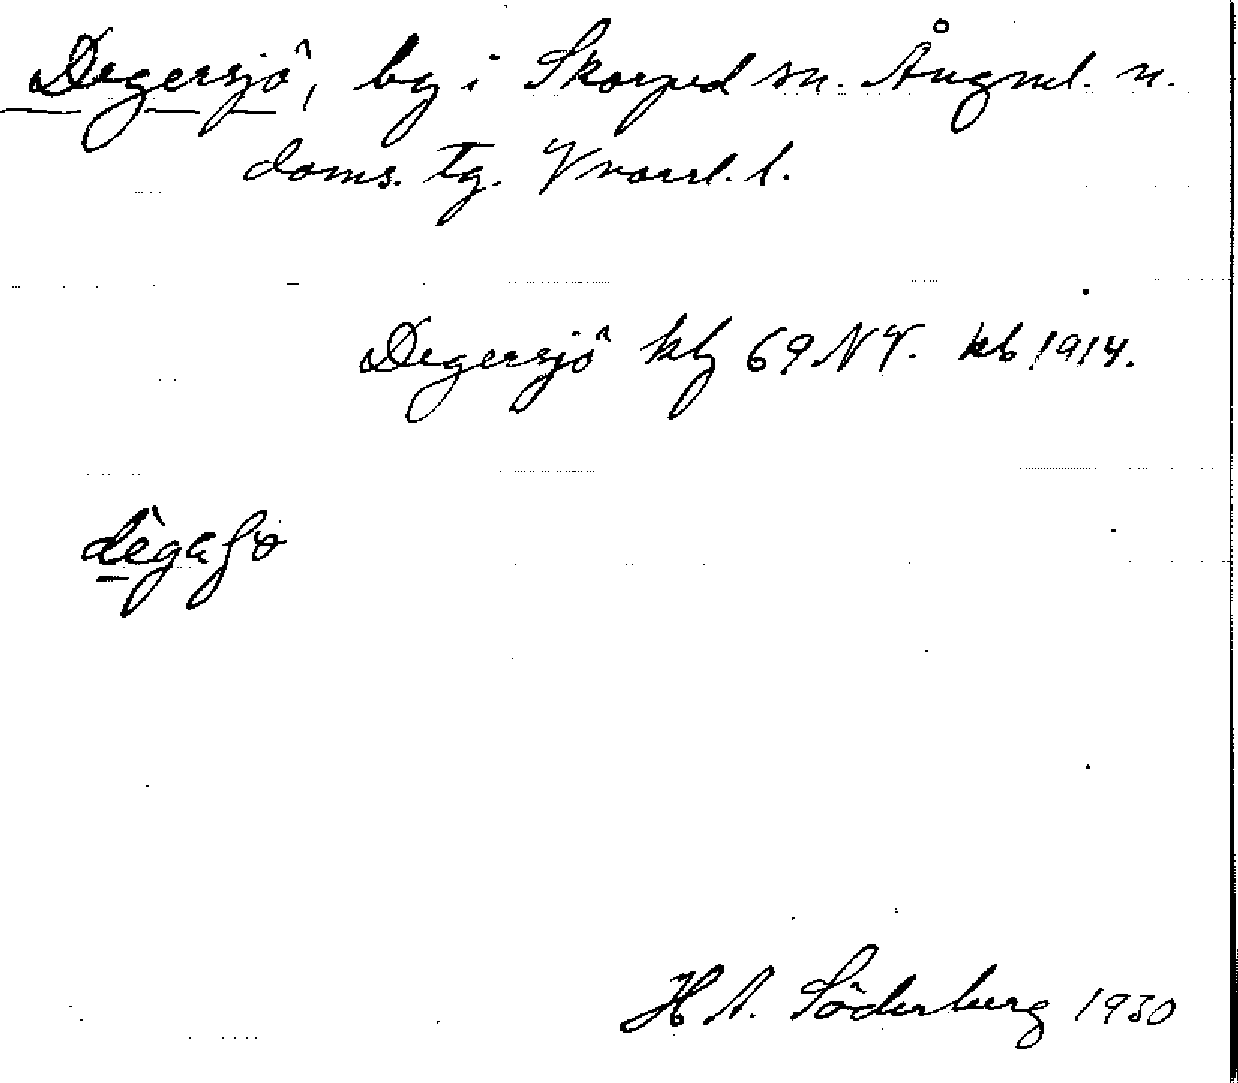 Degersjö, by i Skorped sn. Ångml. n.
doms. tg. Vnorrl. l.
Degersjö kbl 69 NV. kb 1914.
H A. Söderberg 1930